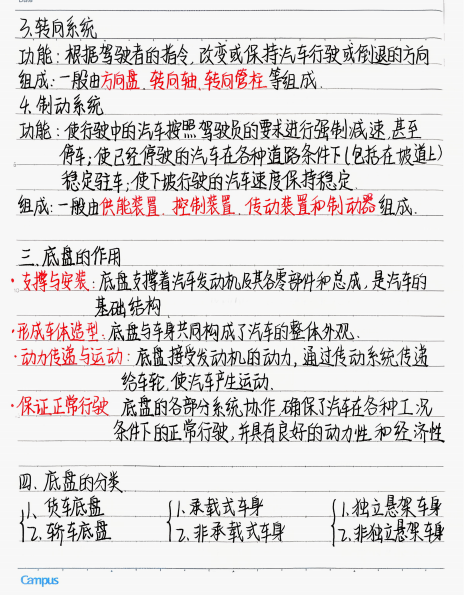 3.转向系统
功能:根据驾驶者的指令,改变或保持汽车行驶或倒退的方向
组成:一般由方向盘、转向轴、转向管柱等组成.
4.制动系统
功能:使行驶中的汽车按照驾驶员的要求进行强制减速,甚至
停车;使已经停驶的汽车在各种道路条件下(包括在坡道上)
稳定驻车;使下坡行驶的汽车速度保持稳定.
组成:一般由供能装置、控制装置、传动装置和制动器组成.
三.底盘的作用
·支撑与安装:底盘支撑着汽车发动机及其各零部件和总成,是汽车的
基础结构
·形成车体造型:底盘与车身共同构成了汽车的整体外观.
·动力传递与运动:底盘接受发动机的动力,通过传动系统传递
给车轮,使汽车产生运动.
·保证正常行驶 底盘的各部分系统协作,确保了汽车在各种工况
条件下的正常行驶,并具有良好的动力性和经济性
四.底盘的分类
{1.货车底盘 {1.承载式车身 {1.独立悬架车身
2.轿车底盘 2.非承载式车身 2.非独立悬架车身
Campus